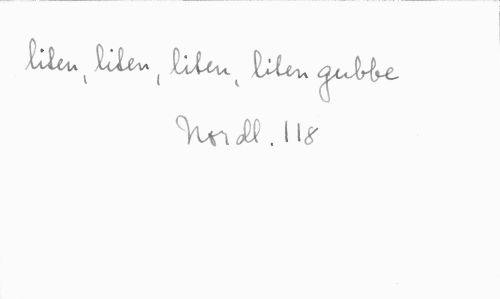 liten, liten, liten, liten gubbe
Nordl. 118